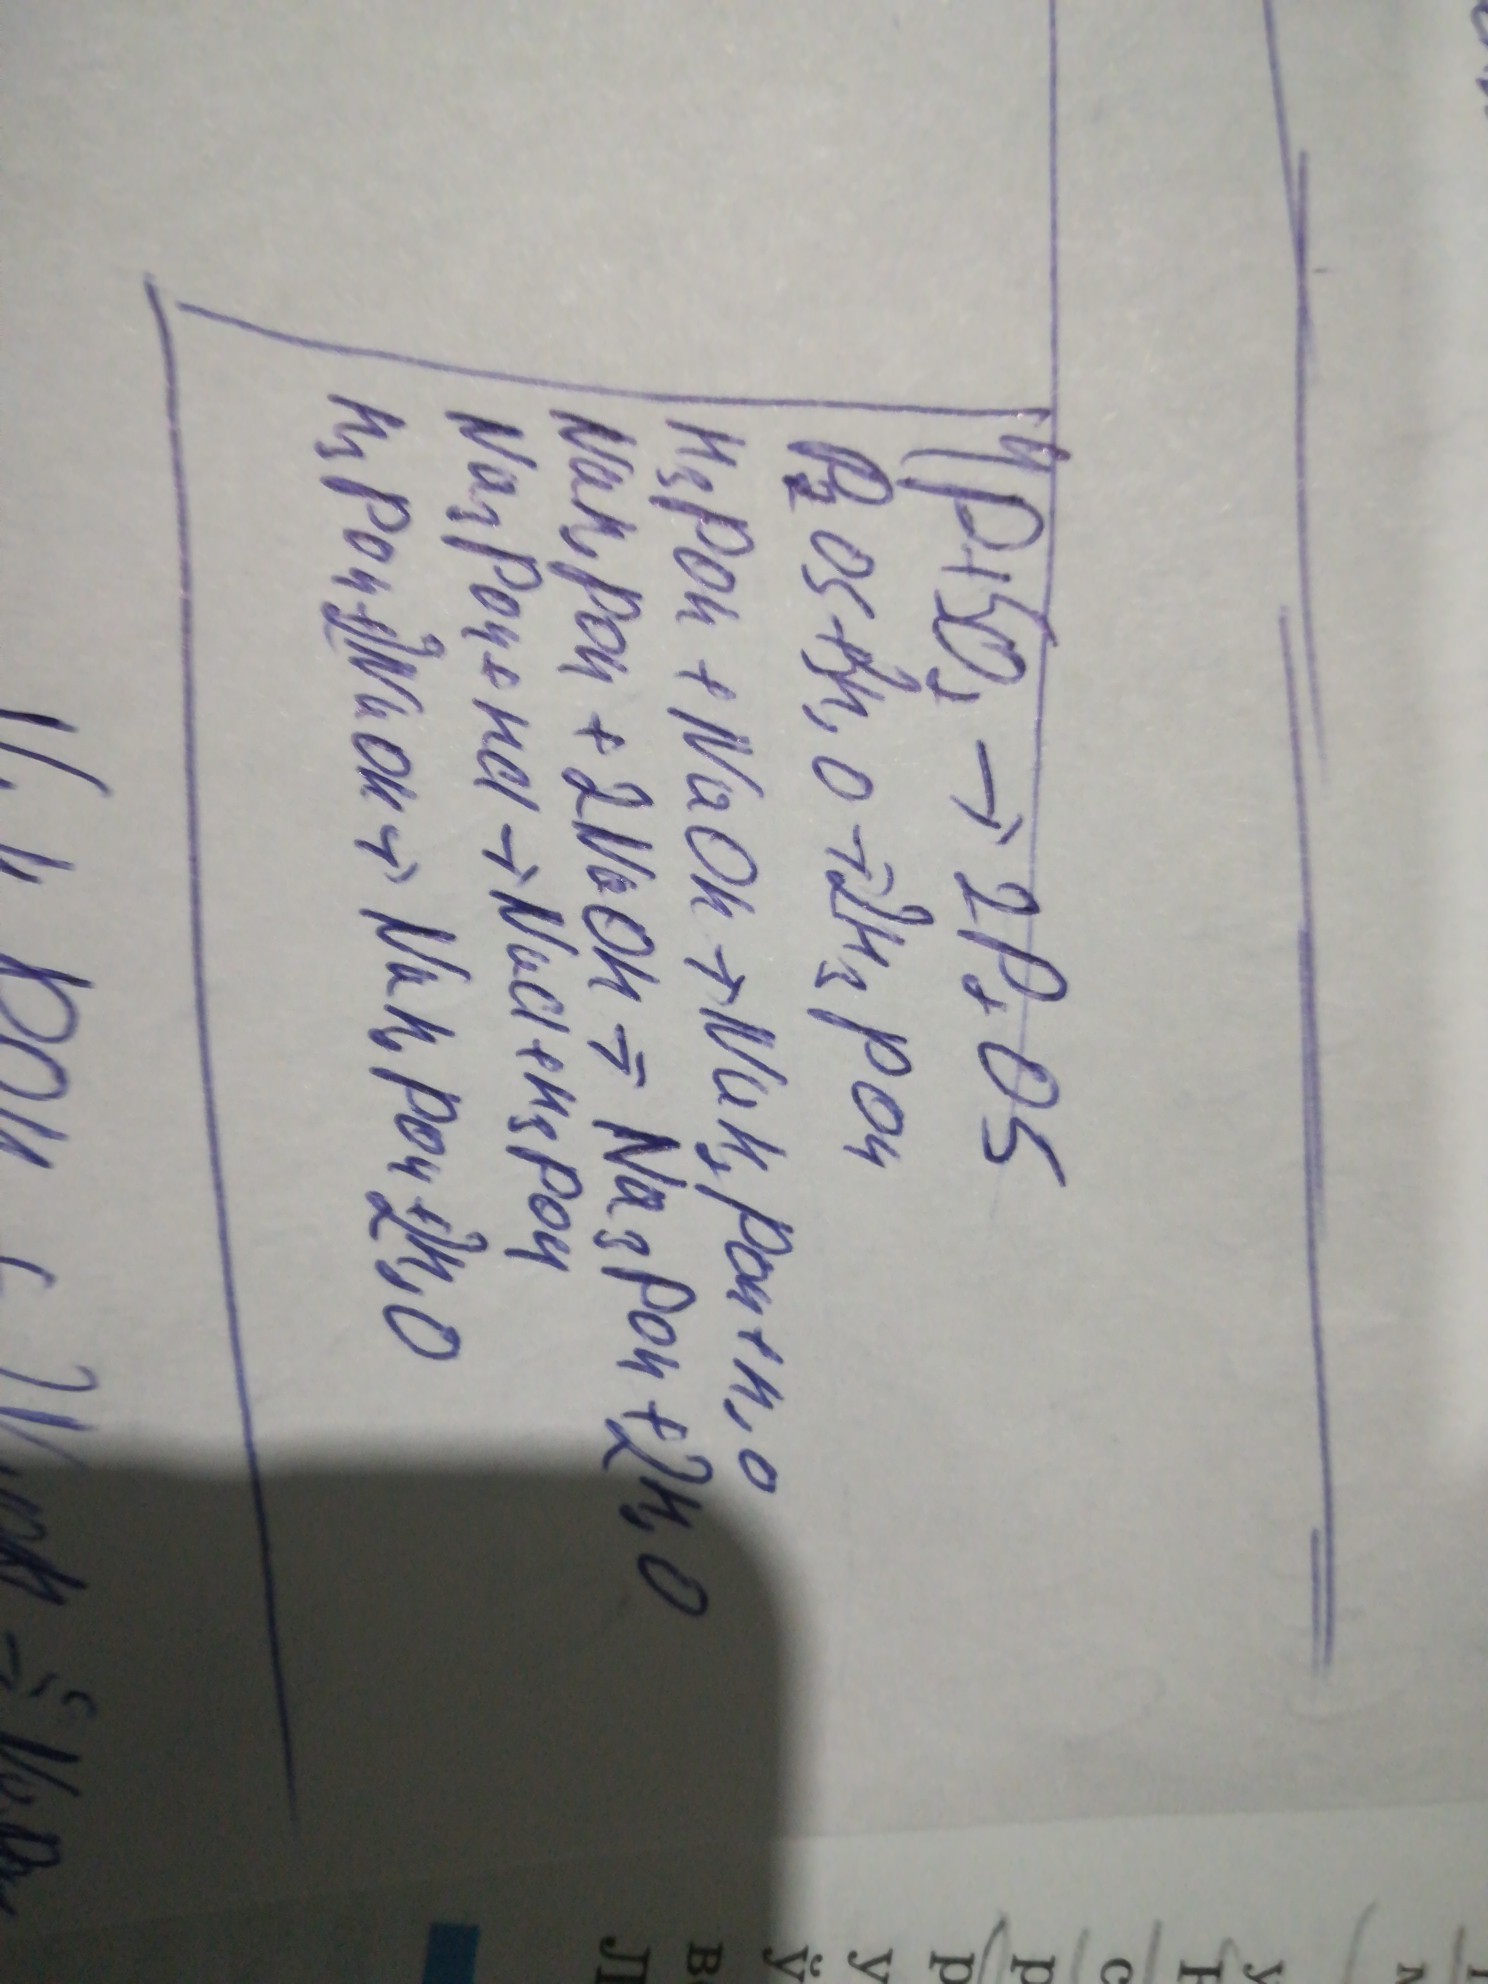 4P+5O2 → 2P2O5
P2O5+3H2O → 2H3PO4
H3PO4 + NaOH → NaH2PO4+H2O
NaH2PO4 + 2NaOH → Na3PO4+2H2O
Na3PO4+HCl → NaCl+H3PO4
H3PO4+2NaOH → NaH2PO4+2H2O